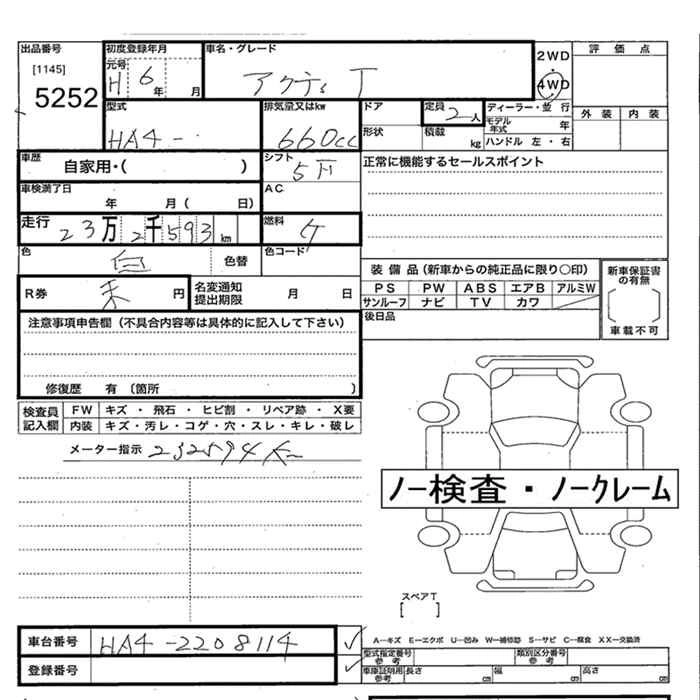 出品番号 初度登録年月 車名・グレード 2WD 評価点
[1145] 元号 H 6 年 月 アクティ T ・
5252 4WD
型式 排気量又はkw ドア 定員 2人 ディーラー・並行 外装 内装
HA4-・ 660cc 形状 積載 kg モデル年式 年
ハンドル 左・右
車歴 自家用・( ) シフト 5F 正常に機能するセールスポイント
車検満了日 年 月( 日) AC
走行 23万2千593km 燃料 ケ
色 白 色替 色コード
装備品(新車からの純正品に限り○印) 新車保証書の有無
R券 未 円 名変通知提出期限 月 日 PS PW ABS エアB アルミW
サンルーフ ナビ TV カワ 車載不可
注意事項申告欄(不具合内容等は具体的に記入して下さい) 後日品
修復歴 有 〔箇所 )
検査員記入欄 FW キズ・飛石・ヒビ割・リペア跡・X要
内装 キズ・汚レ・コゲ・穴・スレ・キレ・破レ
メーター指示 232594K
ノー検査・ノークレーム
スペアT
[ ]
車台番号 HA4-2208114
A―キズ E―エクボ U―凹み W―補修跡 S―サビ C―腐食 XX―交換済
登録番号 型式指定番号 参考 類別区分番号 参考
車庫証明用 参考 長さ cm 幅 cm 高さ cm